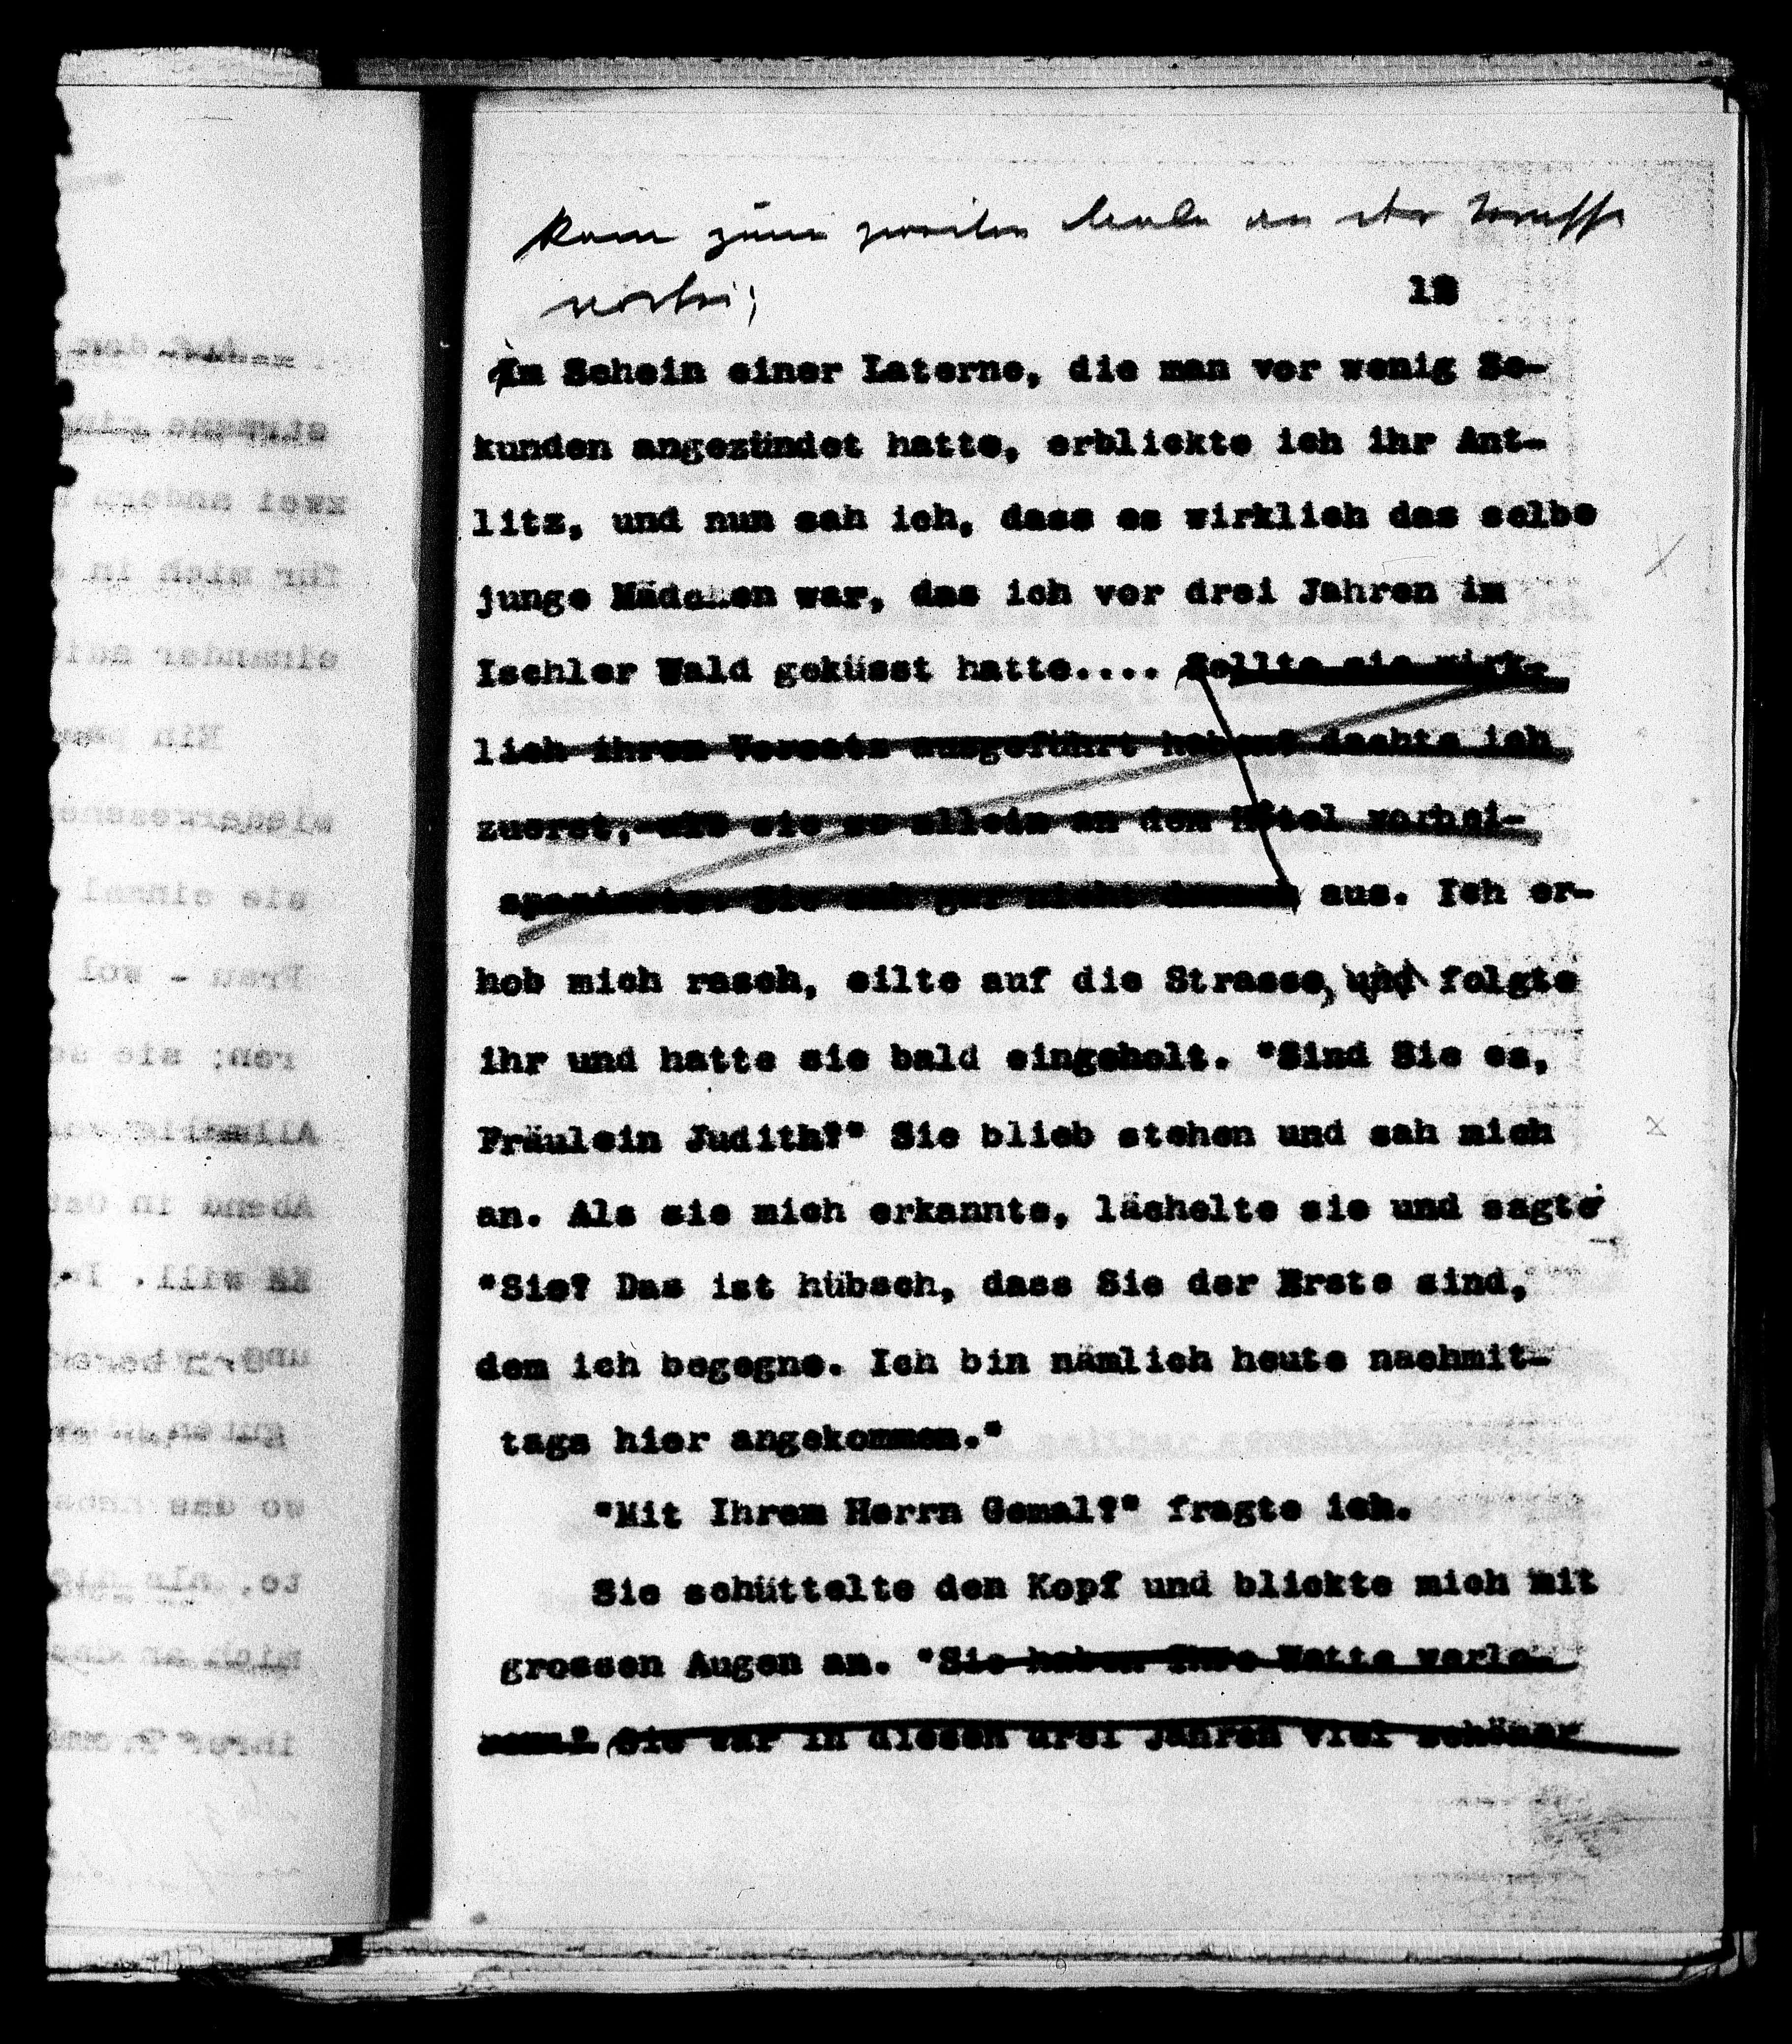 kam zum zweiten Male an der
vorbei;
12
Im Schein einer Laterne, die man vor wenig Se-
kunden angezündet hatte, erblickte ich ihr Ant-
litz, und nun sah ich, dass es wirklich das selbe
junge Mädchen war, das ich vor drei Jahren im
Ischler Wald geküsst hatte.... Sollte sie wirk-
lich ihren Vorsatz ausgeführt haben? dachte ich
zuerst, wie sie so allein an dem Hôtel vorbei-
spazierte. Sie sah gar nicht danach aus. Ich er-
hob mich rasch, eilte auf die Strasse, und folgte
ihr und hatte sie bald eingeholt. "Sind Sie es,
Fräulein Judith?" Sie blieb stehen und sah mich
an. Als sie mich erkannte, lächelte sie und sagte:
"Sie? Das ist hübsch, dass Sie der Erste sind,
dem ich begegne. Ich bin nämlich heute nachmit-
tags hier angekommen."
"Mit Ihrem Herrn Gemal?" fragte ich.
Sie schüttelte den Kopf und blickte mich mit
grossen Augen an. "Sie haben Ihre Wette verlo-
ren." Sie war in diesen drei Jahren viel schöner